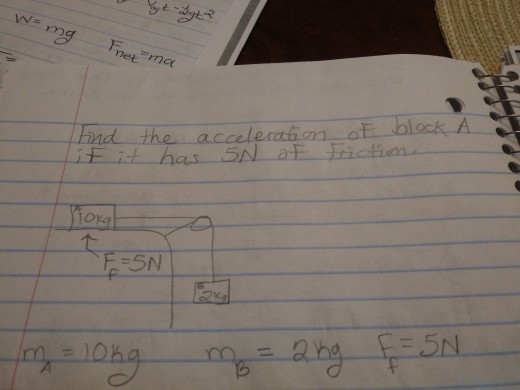 W = mg
F_net = ma
Find the acceleration of block A
if it has 5N of friction.
10kg
F_f = 5N
B
2kg
m_A = 10kg m_B = 2kg F_f = 5N